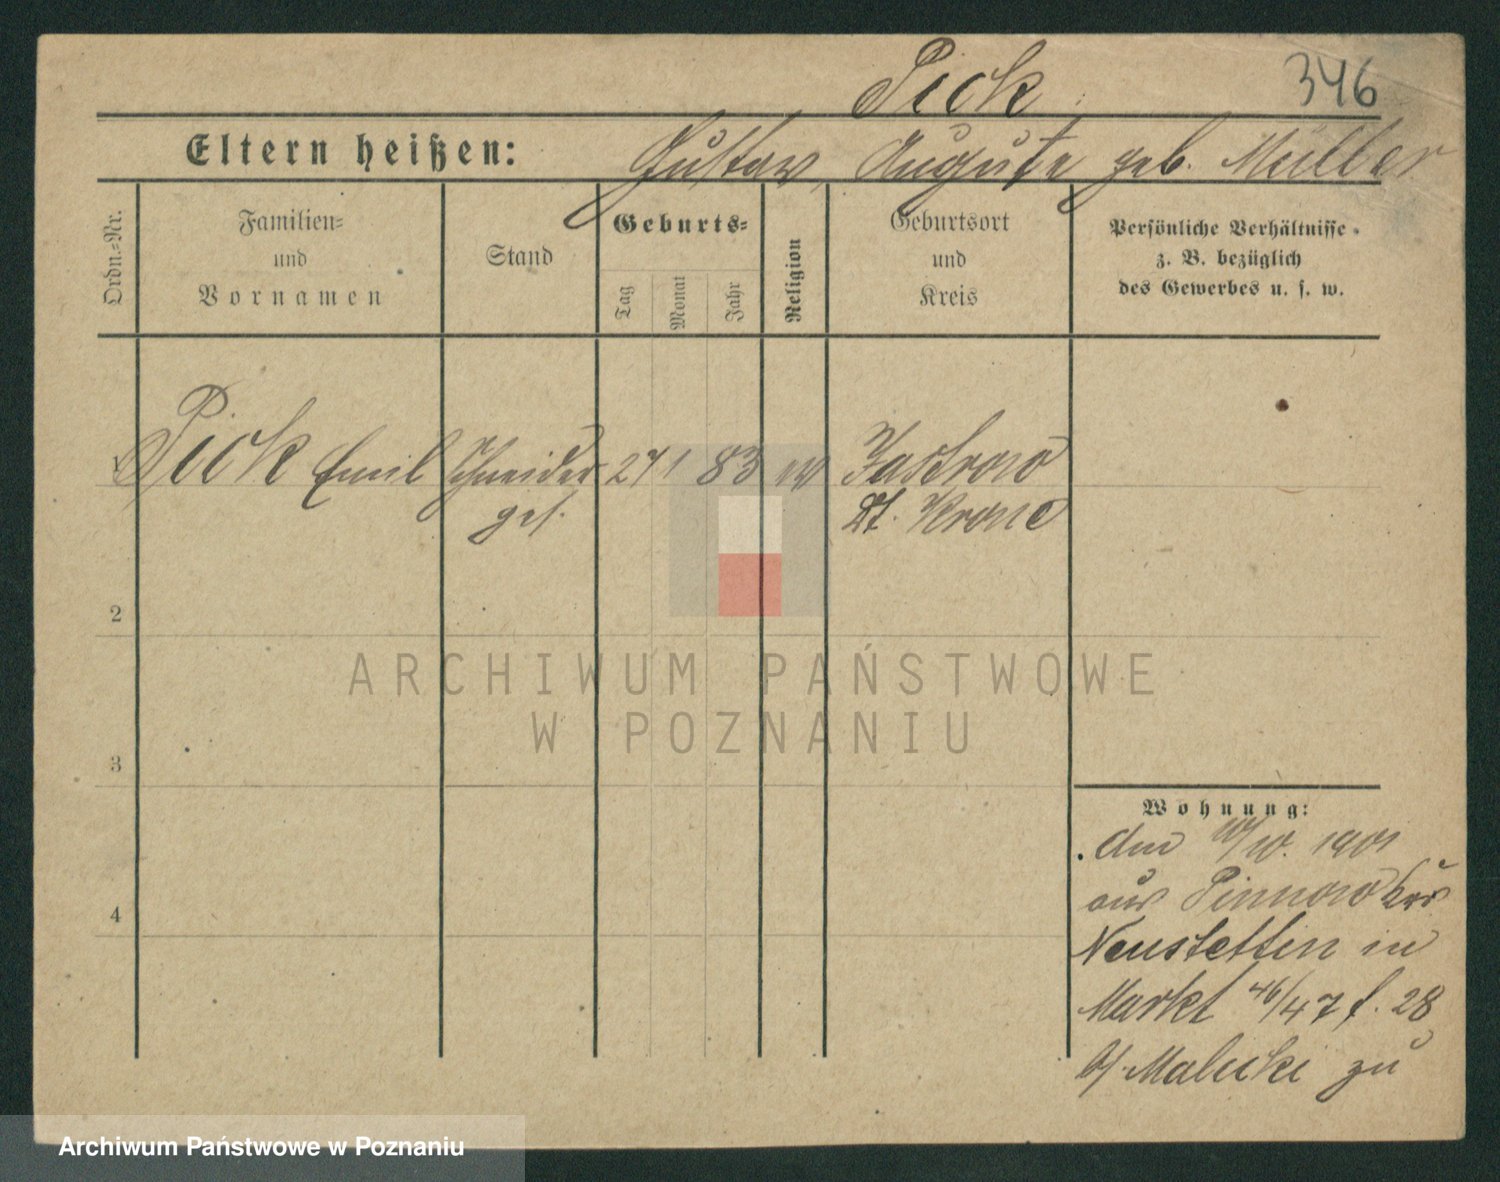 Pick
346
Eltern heißen: Gustav, Auguste geb. Müller
Ordn.=Nr.
Familien=
und
Vornamen
Stand
Geburts=
Tag
Monat
Jahr
Religion
Geburtsort
und
Kreis
Persönliche Verhältnisse
z. B. bezüglich
des Gewerbes u. s. w.
1 Pick Emil Schneider 27 1 83 ev Jastrow
ges. Dt. Krone
2
3
4
Wohnung:
den 10/10. 1901
aus Pinnow Krs
Neustettin in
Markt 46/47 f. 28
b/ Malicki zu
ARCHIWUM PAŃSTWOWE
W POZNANIU
Archiwum Państwowe w Poznaniu